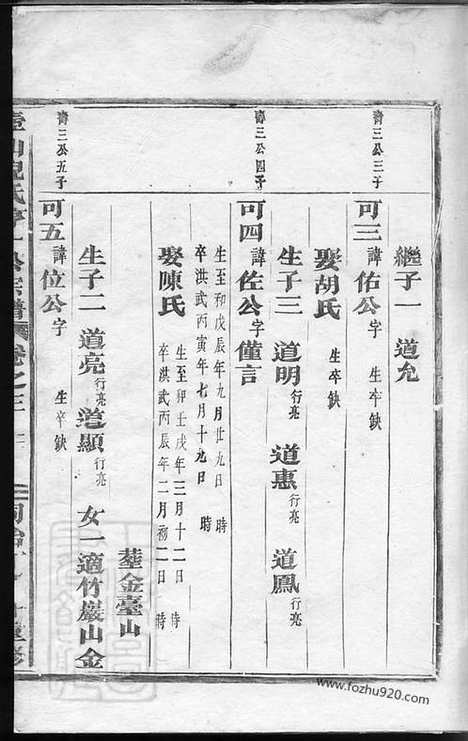 繼子一 道允
齊三公三子
可三諱佑公字 生卒缺
娶胡氏 生卒缺
生子三 道明行亮 道惠行亮 道鳳行亮
齊三公四子
可四諱佐公字僅言
生至和戊辰年九月廿九日 時
卒洪武丙寅年七月十九日 時
娶陳氏 生至和壬戌年三月十二日 時
卒洪武丙辰年二月初二日 時
塟金臺山
生子二 道亮行亮 道顯行亮 女一適竹巖山金
齊三公五子
可五諱位公字 生卒缺
氏亨一公宗譜 卷之三
www.fozhu920.com